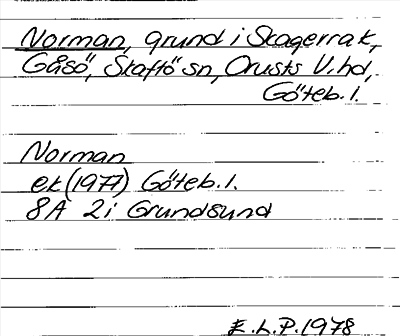 Norman, grund i Skagerrak,
Gåsö, Skaftö sn, Orusts V. hd,
Göteb. l.
Norman
ek (1977) Göteb. l.
8A 2i Grundsund
E.L.P. 1978